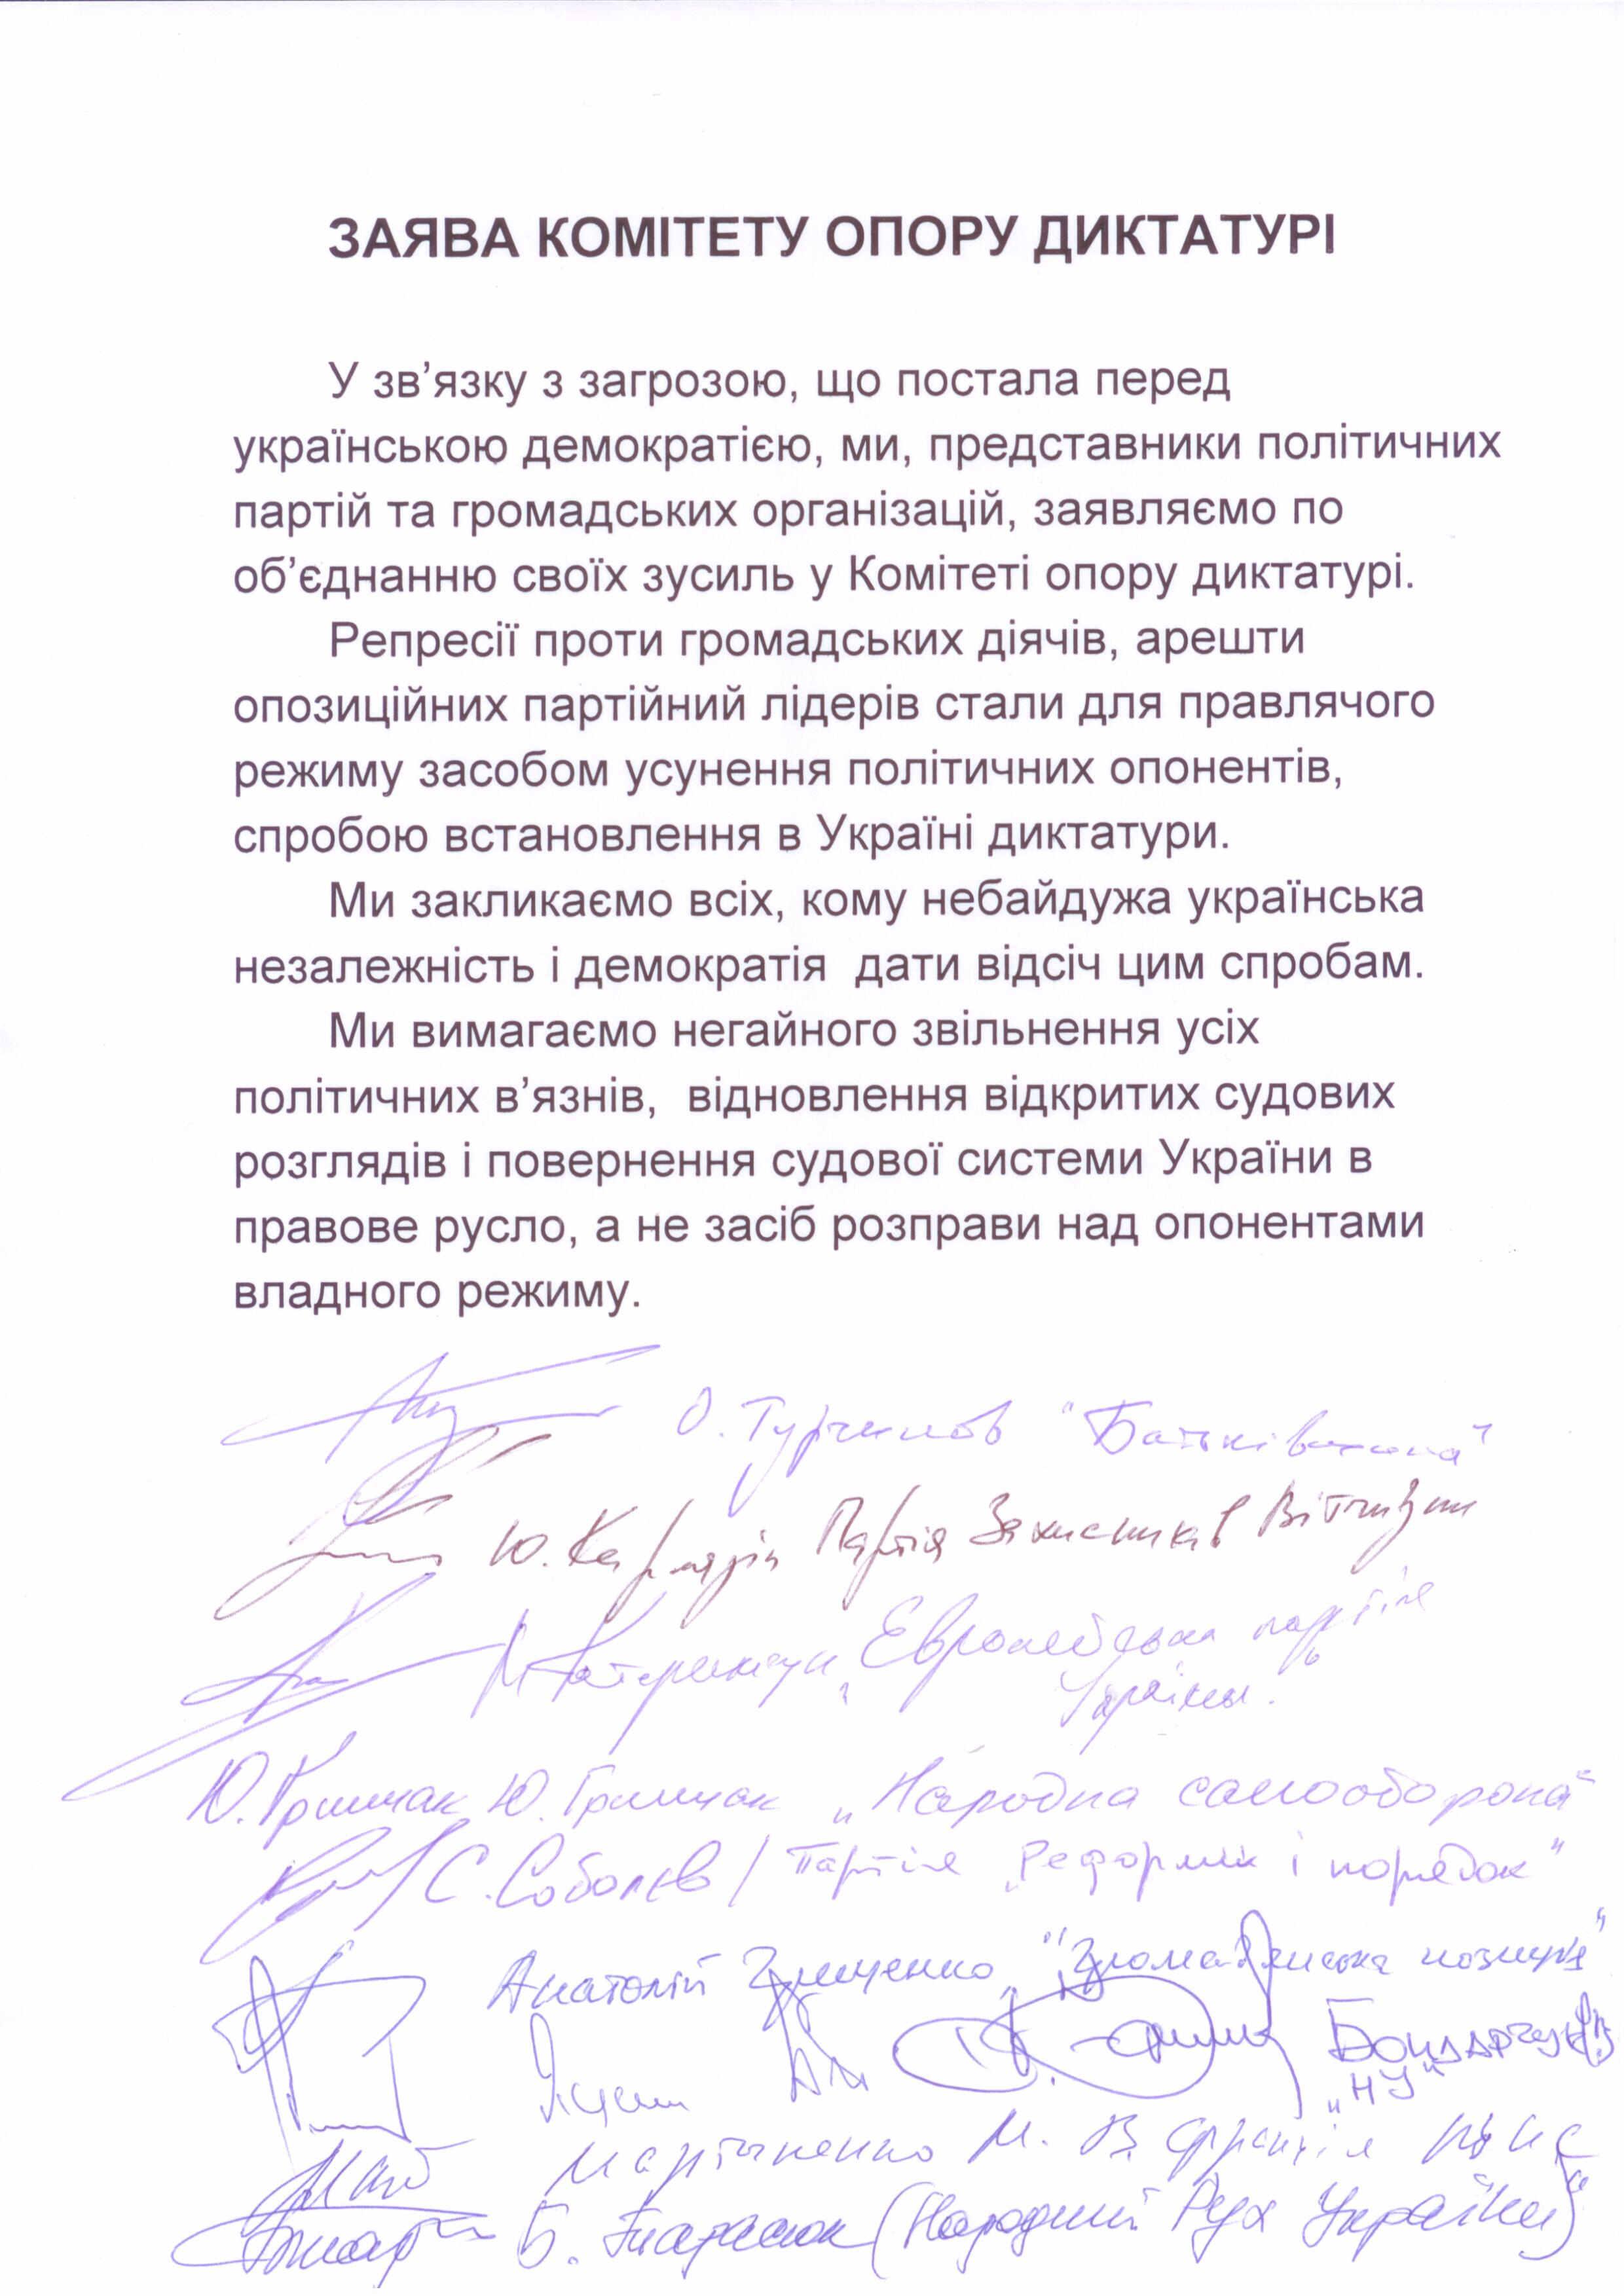 ЗАЯВА КОМІТЕТУ ОПОРУ ДИКТАТУРІ
У зв’язку з загрозою, що постала перед
українською демократією, ми, представники політичних
партій та громадських організацій, заявляємо по
об’єднанню своїх зусиль у Комітеті опору диктатурі.
Репресії проти громадських діячів, арешти
опозиційних партійний лідерів стали для правлячого
режиму засобом усунення політичних опонентів,
спробою встановлення в Україні диктатури.
Ми закликаємо всіх, кому небайдужа українська
незалежність і демократія  дати відсіч цим спробам.
Ми вимагаємо негайного звільнення усіх
політичних в’язнів,  відновлення відкритих судових
розглядів і повернення судової системи України в
правове русло, а не засіб розправи над опонентами
владного режиму.
О. Турчинов "Батьківщина"
Ю. Кармазін Партія Захисників Вітчизни
М Катеринчук, Європейська партія
України.
Ю. Гримчак Ю. Гримчак „Народна самооборона"
С. Соболєв / Партія „Реформи і порядок"
Анатолій Гриценко "Громадянська позиція"
Бондарчук
„НУ"
Мартиненко М. В фракція
Б. Тарасюк (Народний Рух України)